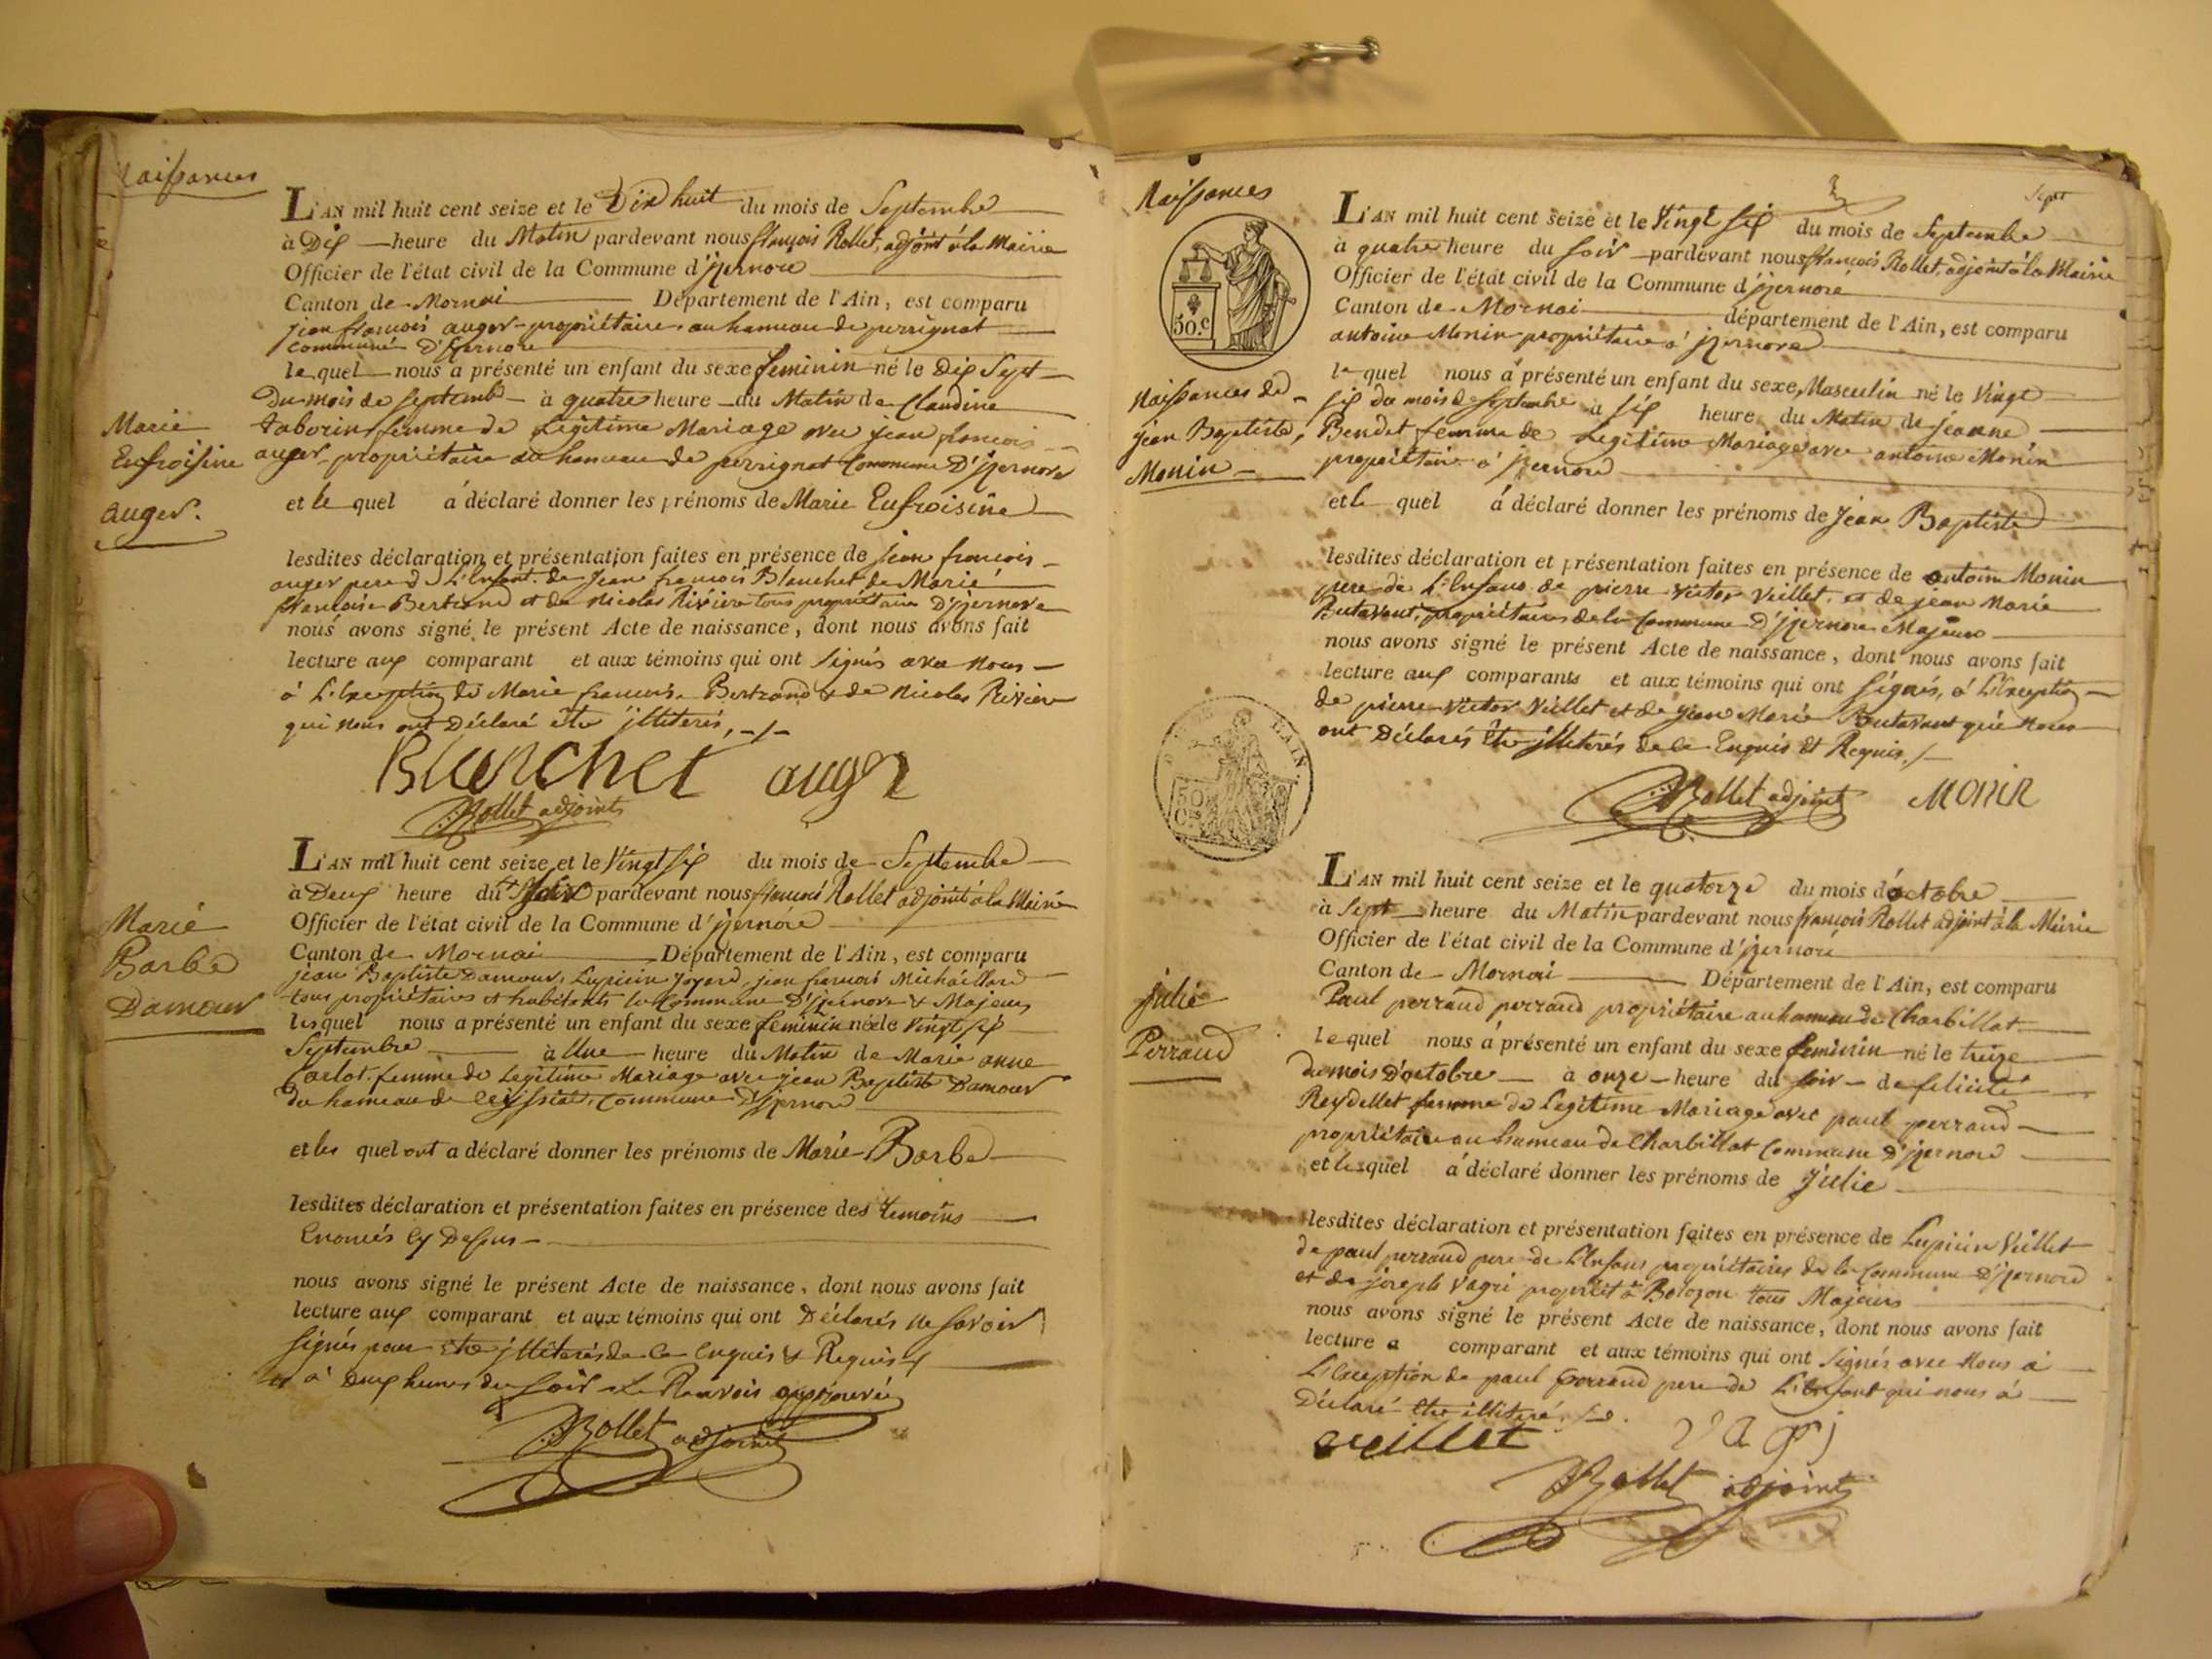 Naissances
L'AN mil huit cent seize et le Dix huit du mois de Septembre
à Dix heure du Matin pardevant nous françois Rollet, adjoint à la Mairie
Officier de l'état civil de la Commune d'jzernore
Canton de Mornai Département de l'Ain, est comparu
jean françois auger propriétaire au hameau de perrignat
commune D'jzernore
lequel nous a présenté un enfant du sexe feminin né le Dix Sept
Du mois de Septembre à quatre heure du Matin de Claudine
taborin femme de Legitime Mariage avec jean francois
auger propriétaire au hameau de perrignat Commune D'jzernore
Marie
Eufroisine
auger.
et le quel a déclaré donner les prénoms de Marie Eufroisine
lesdites déclaration et présentation faites en présence de jean francois
auger pere de L'Enfant de Jean francois Blanchet de Marie
françoise Bertrand et de Nicolas Riviere tous propriétaires D'jzernore
nous avons signé le présent Acte de naissance, dont nous avons fait
lecture aux comparant et aux témoins qui ont Signés avec Nous
à L'Exception de Marie francoise Bertrand & de Nicolas Riviere
qui Nous ont Déclaré être jlliterés,
Blanchet auger
Rollet adjoint
L'AN mil huit cent seize et le Vingt six du mois de Septembre
à Deux heure du Soir pardevant nous francois Rollet adjoint à la Mairie
Officier de l'état civil de la Commune d'jzernore
Canton de Mornai Département de l'Ain, est comparu
jean Baptiste Damour, Lupicin joyard, jean francois Michaillard
tous propriétaires et habitants la Commune D'jzernore & Majeurs
lesquel nous a présenté un enfant du sexe feminin née le Vingt six
Septembre à Une heure du Matin de Marie anne
Carlot femme de Legitime Mariage avec jean Baptiste Damour
du hameau de Ceyssiat, Commune D'jzernore
Marie
Barbe
Damour
et les quel ont a déclaré donner les prénoms de Marie Barbe
lesdites déclaration et présentation faites en présence des temoins
Enoncés Cy Dessus
nous avons signé le présent Acte de naissance, dont nous avons fait
lecture aux comparant et aux témoins qui ont Déclarés ne Savoir
Signés pour être jlliterés de ce Enquis & Requis
à Deux heures du Soir Le Renvois approuvé
Rollet adjoint
Sept
Naissances
50.c
L'AN mil huit cent seize et le Vingt Six du mois de Septembre
à quatre heure du Soir pardevant nous francois Rollet, adjoint à la Mairie
Officier de l'état civil de la Commune d'jzernore
Canton de Mornai département de l'Ain, est comparu
antoine Monin propriétaire à jzernore
le quel nous a présenté un enfant du sexe Masculin né le Vingt
six du mois de Septembre à six heure du Matin de jeanne
Bendet femme de Legitime Mariage avec antoine Monin
propriétaire à jzernore
Naissances de
jean Baptiste,
Monin
et le quel a déclaré donner les prénoms de Jean Baptiste
lesdites déclaration et présentation faites en présence de antoine Monin
pere de L'Enfans de pierre Victor Veillet, et de jean Marie
Butavant, propriétaires de la Commune D'jzernore Majeurs
nous avons signé le présent Acte de naissance, dont nous avons fait
lecture aux comparants et aux témoins qui ont Signés, à L'Exception
de pierre Victor Veillet et de jean Marie Butavant qui Nous
ont Déclarés être jlliterés de ce Enquis et Requis
AIN.
50
C.
Rollet adjoint Monin
L'AN mil huit cent seize et le quatorze du mois d'octobre
à Sept heure du Matin pardevant nous francois Rollet adjoint à la Mairie
Officier de l'état civil de la Commune d'jzernore
Canton de Mornai Département de l'Ain, est comparu
Paul perraud perraud propriétaire au hameau de Charbillat
lequel nous a présenté un enfant du sexe feminin né le treize
du mois D'octobre à onze heure du soir de felicité
Reydellet femme de Legitime Mariage avec paul perraud
propriétaire au hameau de Charbillat Commune D'jzernore
julie
Perraud
et lesquel a déclaré donner les prénoms de Julie
lesdites déclaration et présentation faites en présence de Lupicin Veillet
de paul perraud pere de L'Enfans propriétaires de la Commune D'jzernore
et de joseph Vagri propriét à Bolozon tous Majeurs
nous avons signé le présent Acte de naissance, dont nous avons fait
lecture a comparant et aux témoins qui ont Signés avec Nous à
L'Exception de paul perraud pere de L'Enfant qui nous à
Déclaré être illiteré
veillet
Rollet adjoint